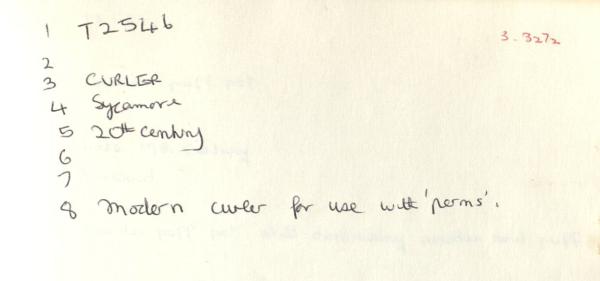 1 T2546
3.3272
2
3 CURLER
4 Sycamore
5 20th century
6
7
8 Modern curler for use with 'perms'.